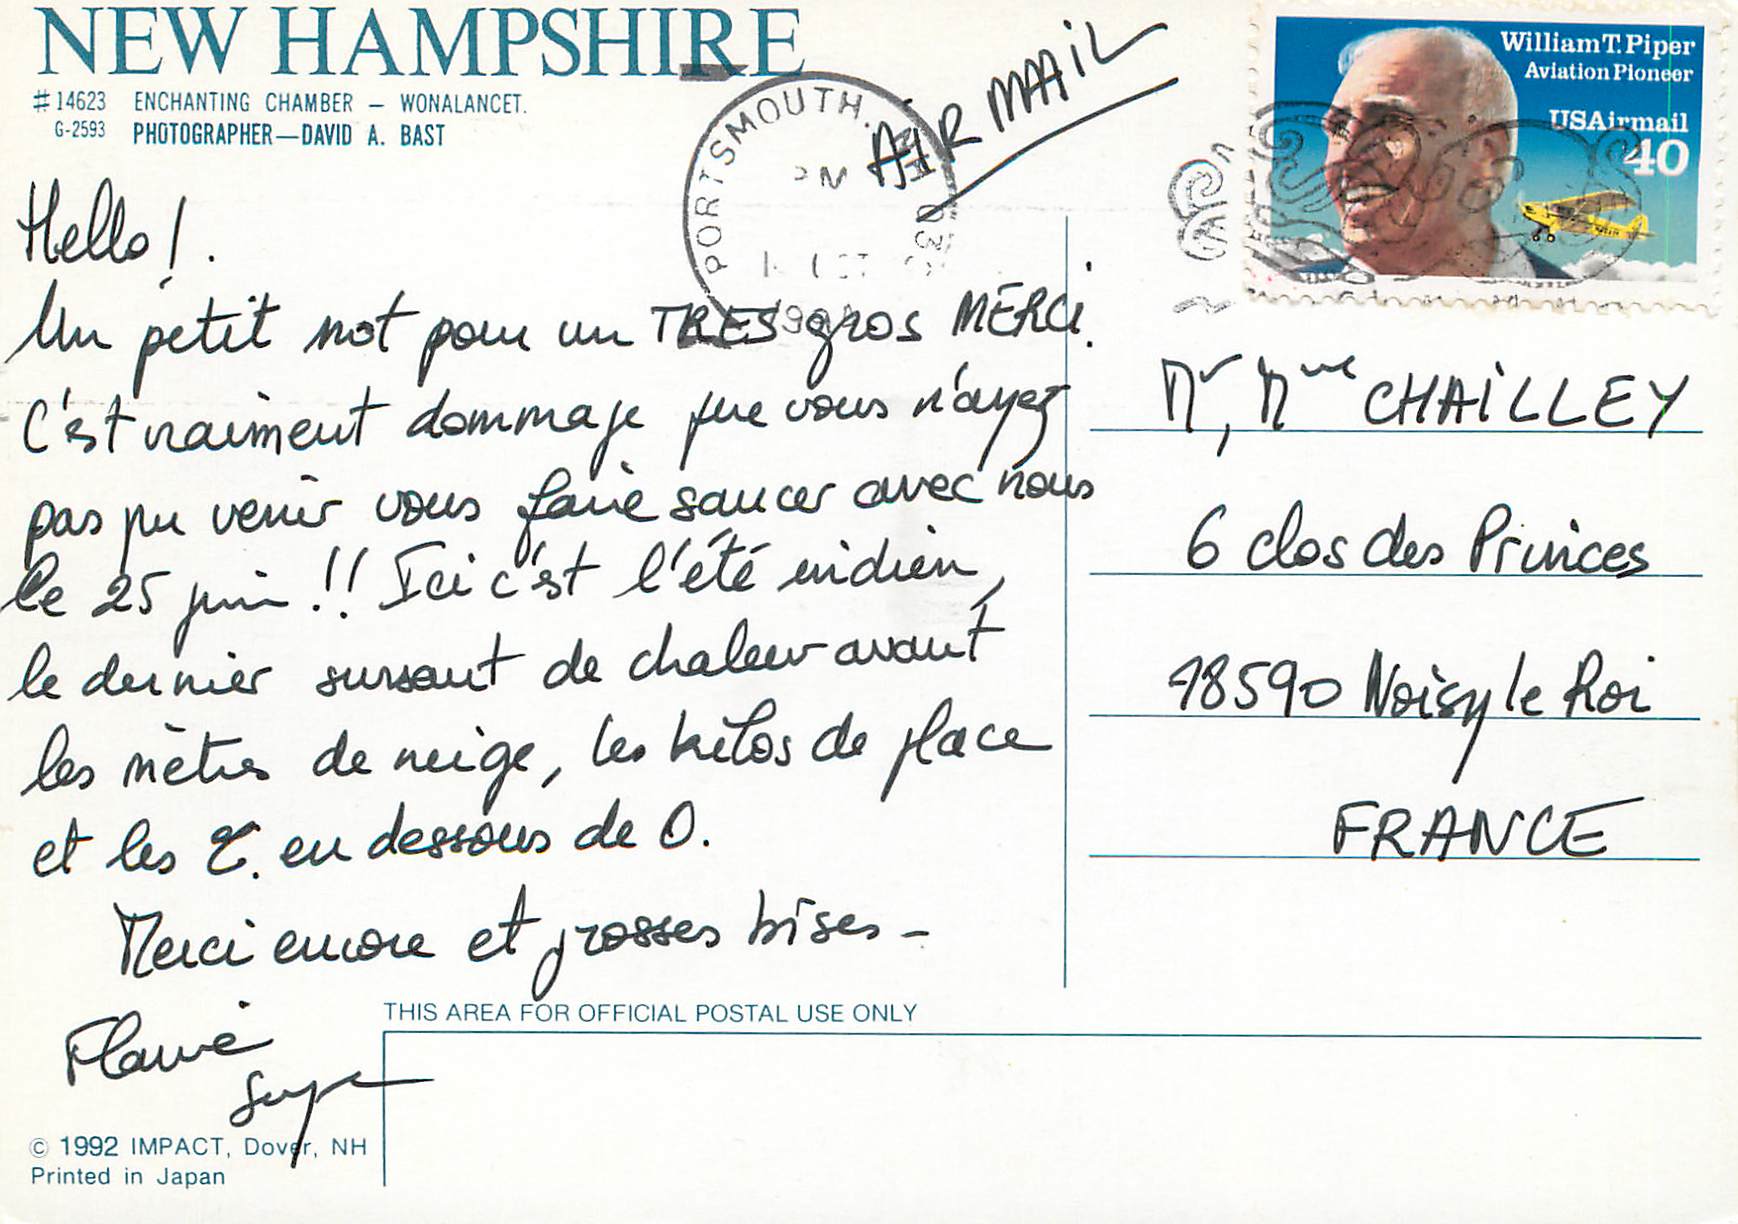 NEW HAMPSHIRE
#14623 ENCHANTING CHAMBER – WONALANCET.
G-2593 PHOTOGRAPHER—DAVID A. BAST
PORTSMOUTH. NH 038
PM
OCT
AIR MAIL
William T. Piper
Aviation Pioneer
USAirmail
40
Hello !.
Un petit mot pour un TRES gros MERCI.
C'est vraiment dommage que vous n'ayez
pas pu venir vous faire saucer avec nous
le 25 juin !! Ici c'est l'été indien,
le dernier sursaut de chaleur avant
les mètres de neige, les kilos de glace
et les en dessous de 0.
Merci encore et grosses bises –
Flavie
Mr, Mme CHAILLEY
6 clos des Princes
78590 Noisy le Roi
FRANCE
THIS AREA FOR OFFICIAL POSTAL USE ONLY
© 1992 IMPACT, Dover, NH
Printed in Japan